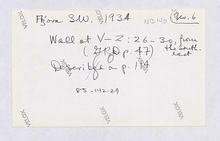 Fjara S.W. 1934
No. 6
Wall at V-Z: 26-30, from
the south-
east
(GPD p. 47)
Described on p. 114
83-142-29
VELOX